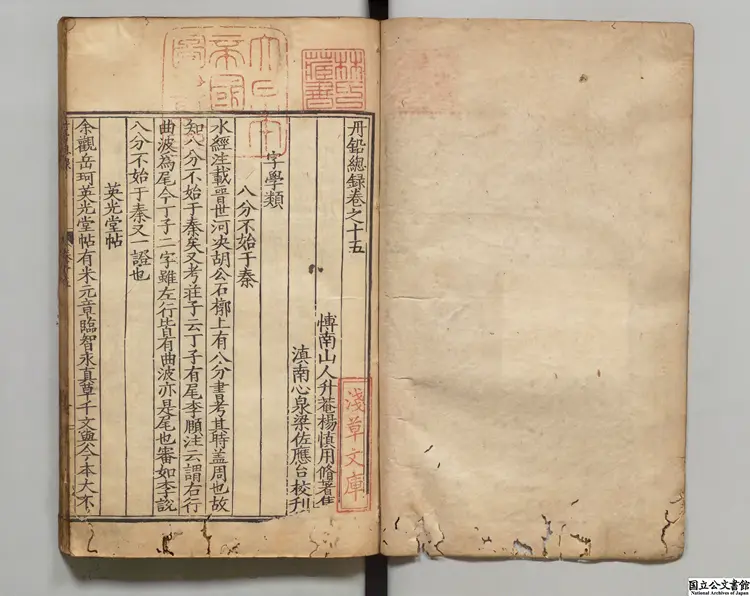 丹鉛總録卷之十五
博南山人升菴楊慎用脩著
滇南心泉梁佐應台校刋
字學類
八分不始于秦
水經注載晉世河决胡公石槨上有八分書考其時盖周也故
知八分不始于秦矣又考莊子云丁子有尾李頤注云謂右行
曲波為尾今丁子二字雖左行皆有曲波亦是尾也審如李說
八分不始于秦又一證也
英光堂帖
余觀岳珂英光堂帖有米元章臨智永真草千文與今本大不
林氏藏書
淺草文庫
国立公文書館
National Archives of Japan